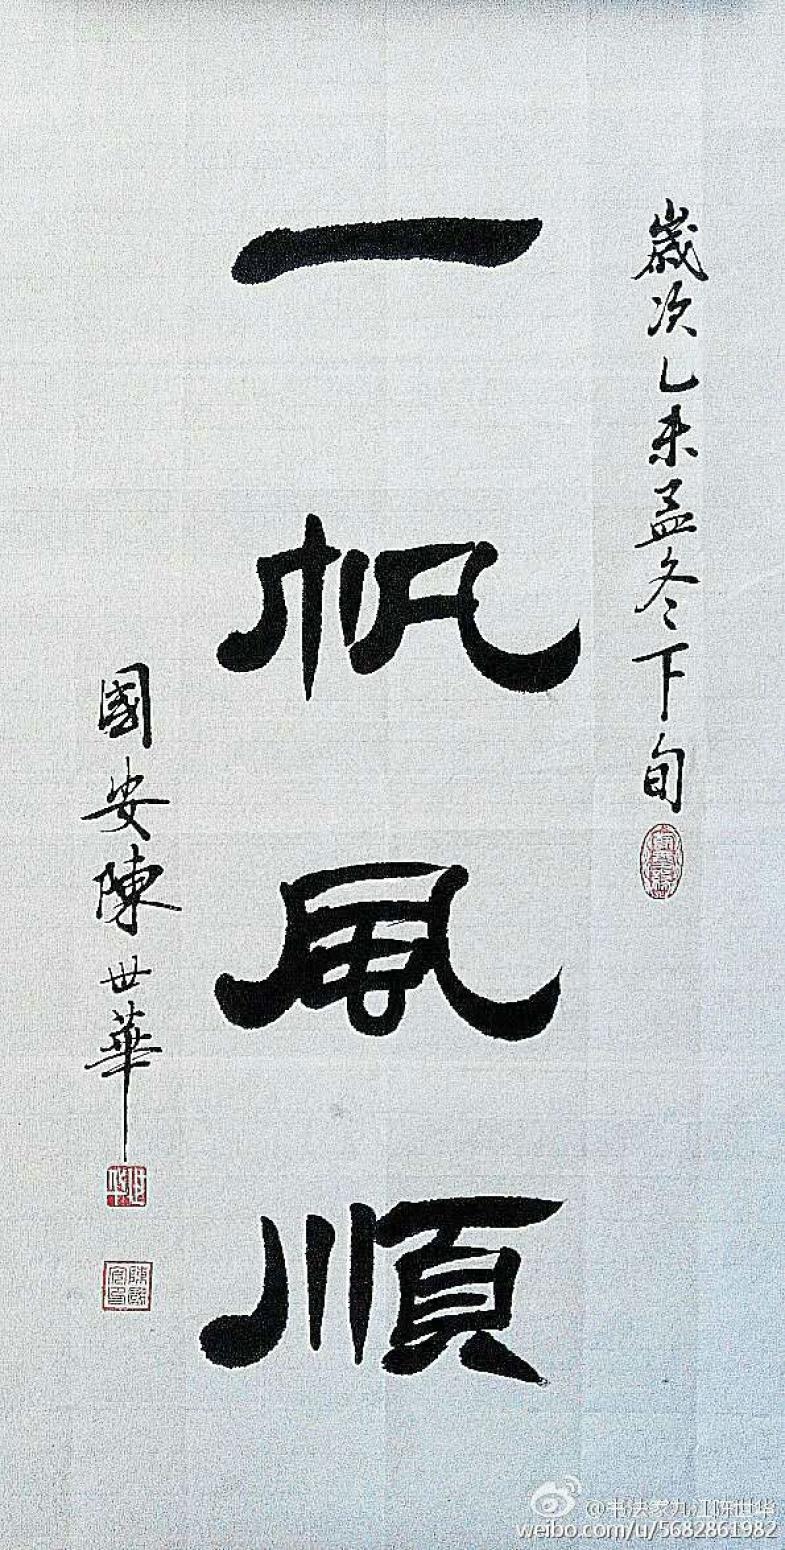 歲次乙未孟冬下旬
一帆風順
國安陳世華
@书法家九江陈世华
weibo.com/u/5682861982